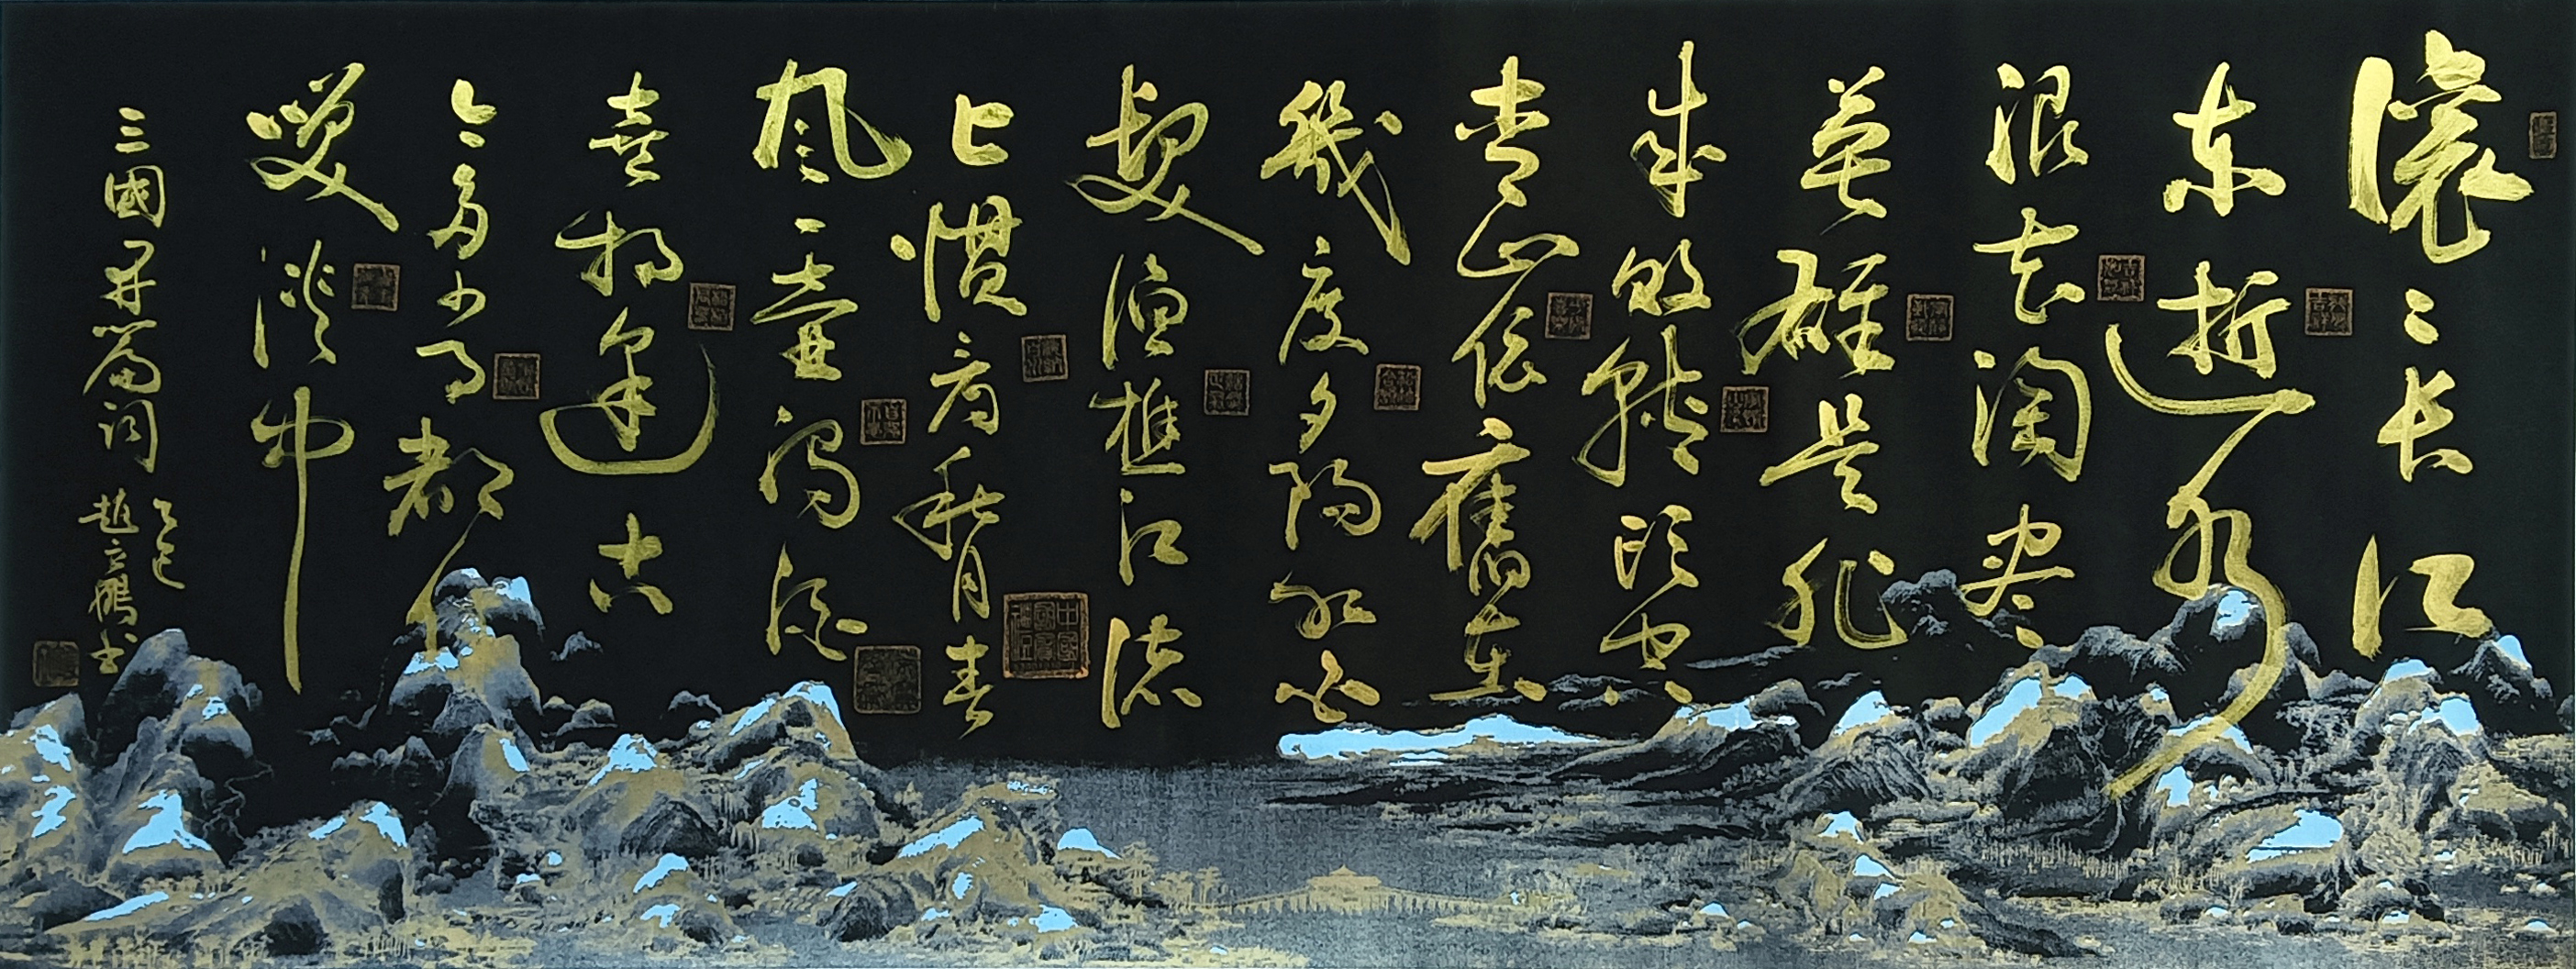 滚〻长江
东逝水
浪花淘尽
英雄是非
成败转头空
青山依舊在
幾度夕阳红白
髮渔樵江渚
上惯看秋月春
风一壶浊酒
喜相逢古
今多少事都付
笑谈中
三國开篇词
乙巳
赵立鹏书